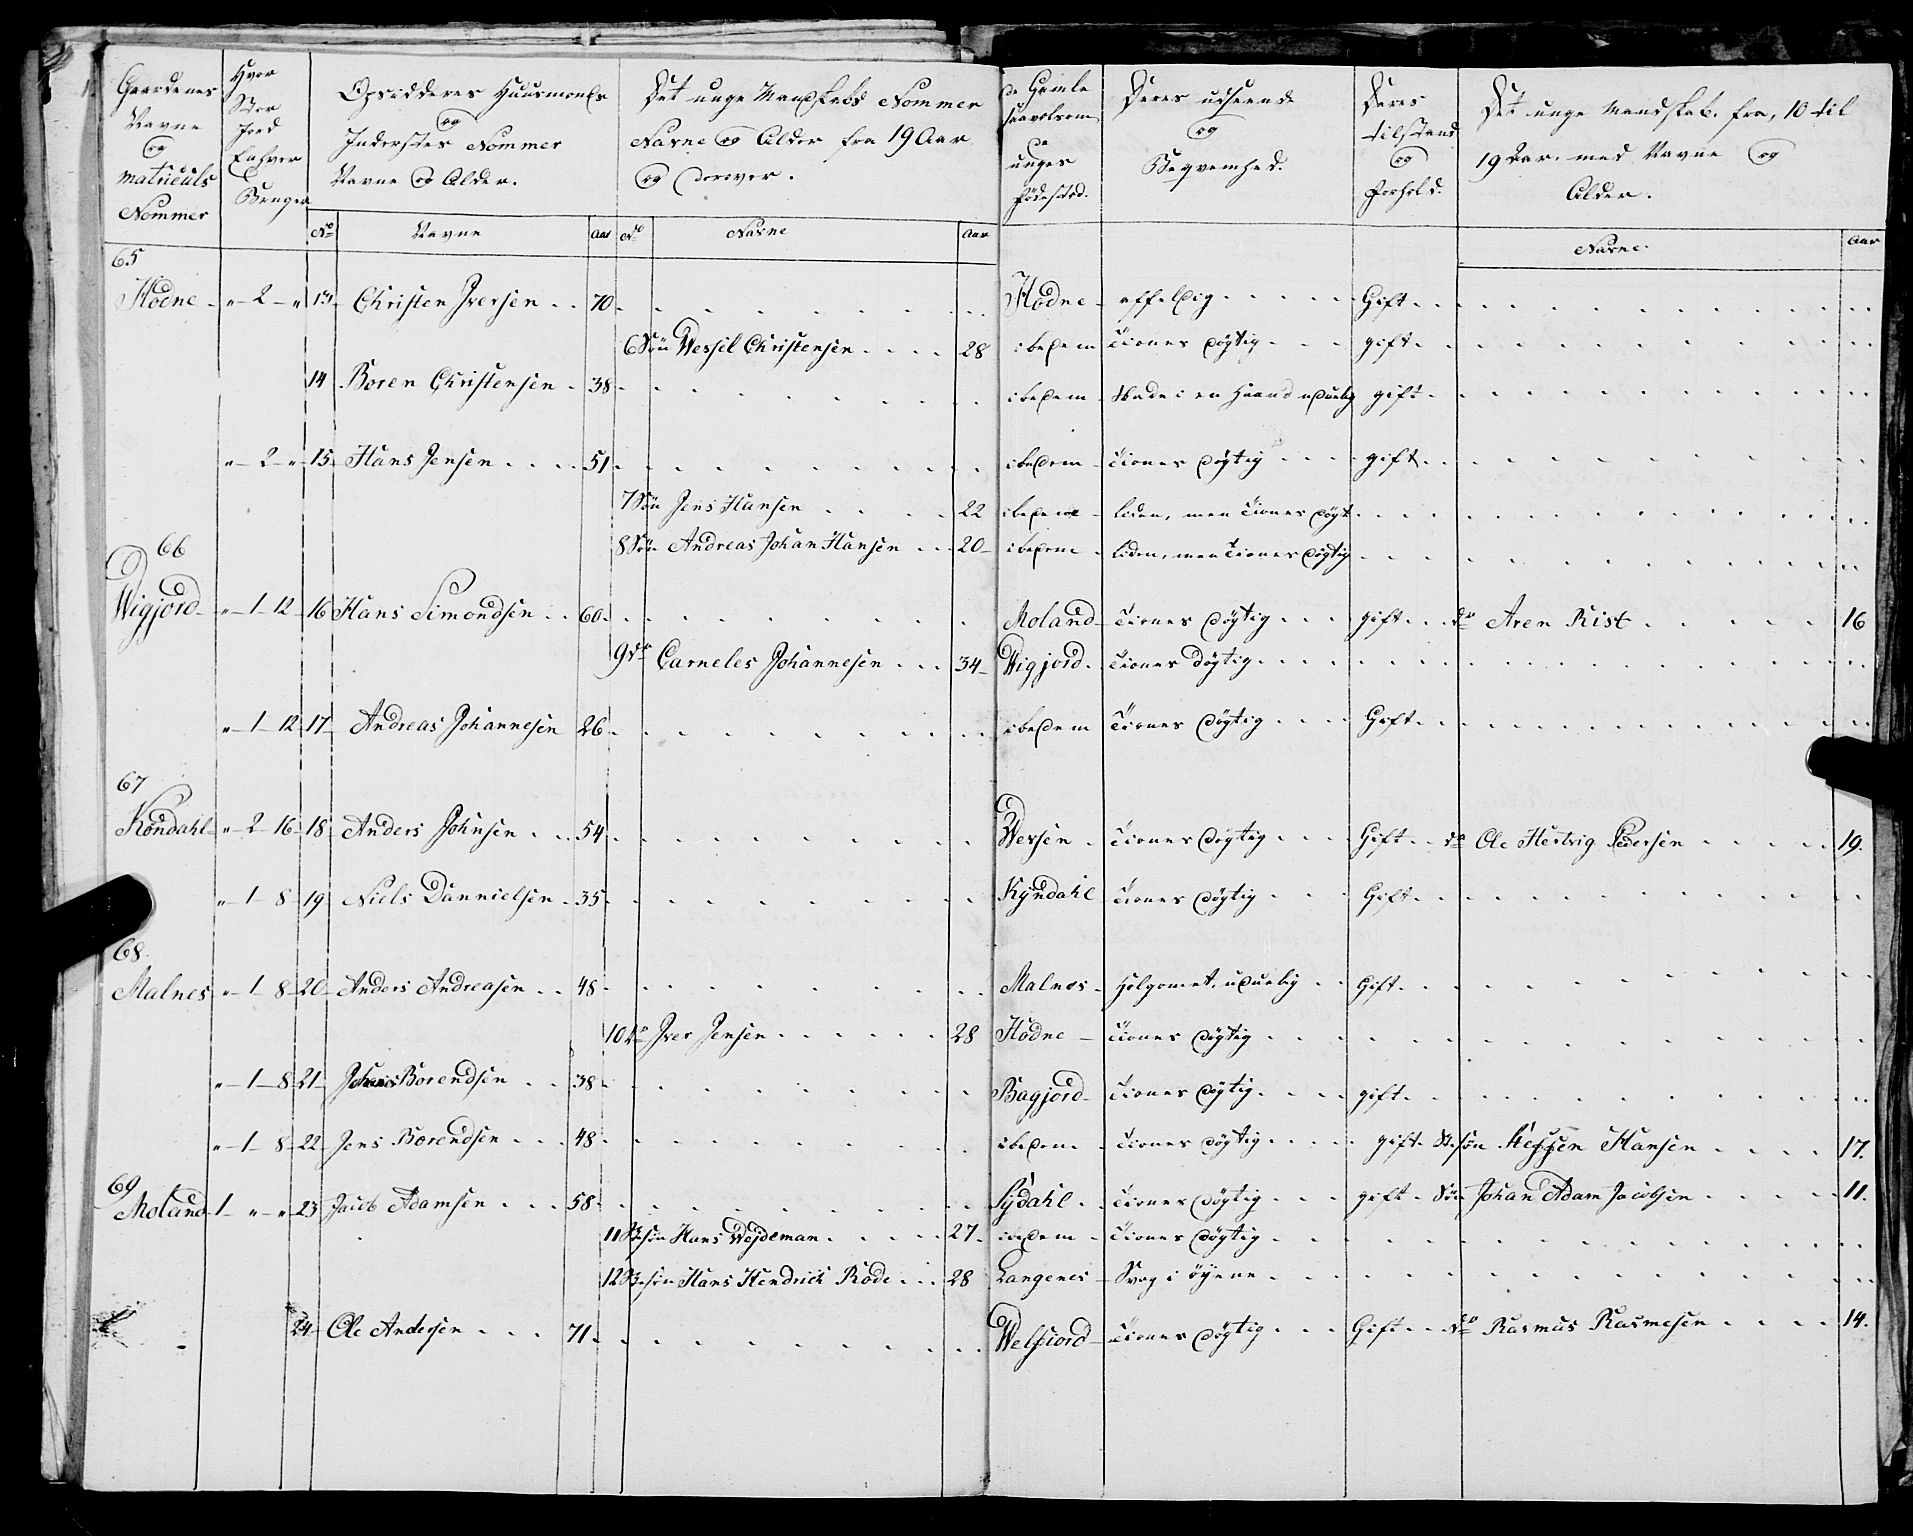 Gaardenes Navne og matriculs Nommer
Hvor Stor Jord Enhver Bruger
Opsidderes Huusmænds og Inderstes Nommer Navne og Alder.
Det unge Mandskabs Nommer Navne og Alder fra 19 Aar og derover.
de Gamle saavelsom de unges fødested.
Deres udseende og Beqvemhed.
Deres tilstand og forhold.
Det unge Mandskab fra, 10 til 19 Aar. med Navne og Alder.
No Navne Aar No Navne Aar Navne. Aar
65
Hodne - " - 2 - " 13 Christen Iversen . . 70 Hodne - affældig Gift
6 Søn Wessel Christensen 28 ibedem Tienes døgtig gift
14 Boren Christensen 38 ibedem Skade i en Haand uduelig gift
" - 2 - " 15 Hans Jensen 51 ibedem Tienes døgtig gift
7 Søn Jens Hansen 22 ibedem liden, men Tienes døgt
8 Søn Andreas Johan Hansen 20 ibedem liden, men Tienes døgtig
66
Wigjord " - 1 - 12 16 Hans Simondsen 60 Moland Tienes døgtig gift do Aren Rist 16
9 do Carneles Johannesen 34 Wigjord Tienes døgtig
" - 1 - 12 17 Andreas Johannesen 26 ibedem Tienes døgtig Gift
67
Køndahl " - 2 - 16 18 Anders Johnsen 54 Wersen Tienes døgtig Gift do Ole Hertvig Pedersen 19.
" - 1 - 8 19 Niels Dannielsen 35 Kyndahl Tienes døgtig Gift
68.
Malnes " - 1 - 8 20 Anders Andreasen 48 Malnes uduelig Gift
10 do Iver Jensen 28 Hodne Tienes døgtig
" - 1 - 8 21 Borendsen 38 Bagjord Tienes døgtig gift
" - 1 - 8 22 Jens Borendsen 48 ibedem Tienes døgtig gift St. søn Hansen 17.
69
Moland 1 - " - " 23 Jacob Adamsen 58 Sydahl Tienes døgtig gift Søn Johan Adam Jacobsen 11.
11 St. søn Hans Wejdeman 27 ibedem Tienes døgtig
12 St. søn Hans Hendrich Rode 28 Langenes Svag i øynene
24 Ole Andersen 71 Welfiord Tienes døgtig Gift do Rasmus Rasmesen 14.